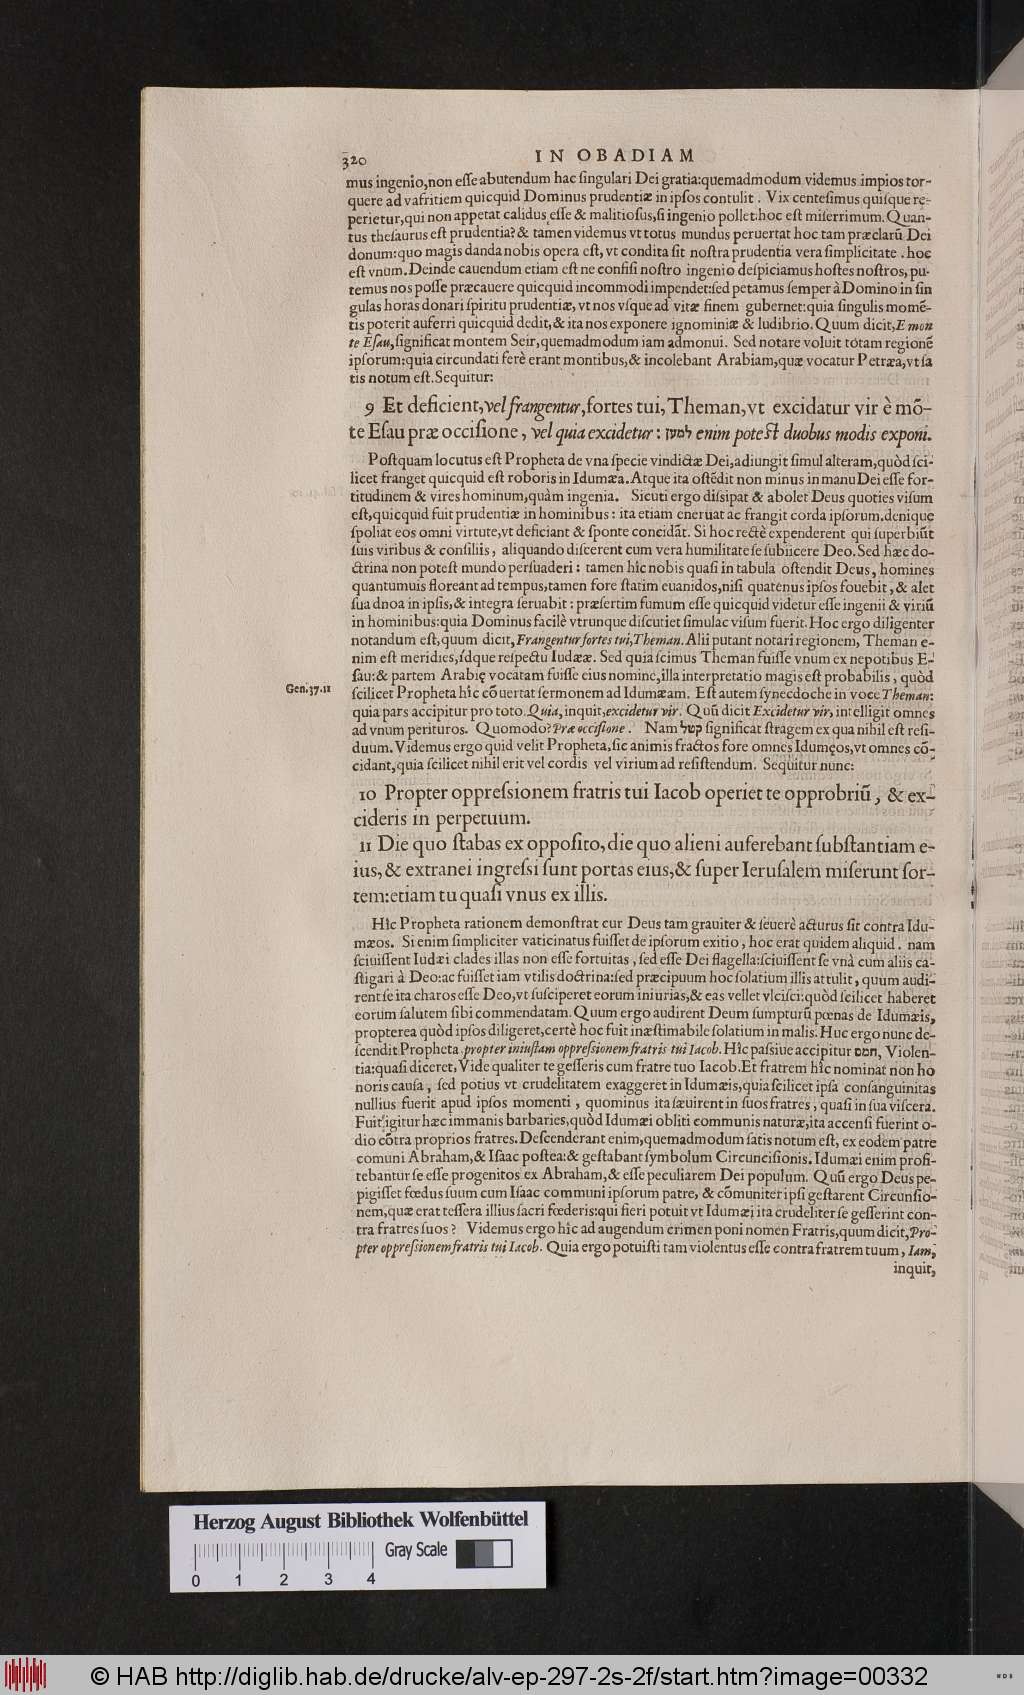 320 IN OBADIAM
mus ingenio,non eſſe abutendum hac ſingulari Dei gratia:quemadmodum videmus impios tor-
quere ad vafritiem quicquid Dominus prudentiæ in ipſos contulit. Vix centeſimus quiſque re-
perietur,qui non appetat calidus eſſe & malitioſus,ſi ingenio pollet.hoc eſt miſerrimum. Quan-
tus theſaurus eſt prudentia? & tamen videmus vt totus mundus peruertat hoc tam præclarũ Dei
donum:quo magis danda nobis opera eſt, vt condita ſit noſtra prudentia vera ſimplicitate. hoc
eſt vnum. Deinde cauendum etiam eſt ne confiſi noſtro ingenio deſpiciamus hoſtes noſtros, pu-
temus nos poſſe præcauere quicquid incommodi impendet:ſed petamus ſemper à Domino in ſin
gulas horas donari ſpiritu prudentiæ, vt nos vſque ad vitæ finem gubernet:quia ſingulis momẽ-
tis poterit auferri quicquid dedit,& ita nos exponere ignominiæ & ludibrio. Quum dicit,E mon
te Eſau,ſignificat montem Seir,quemadmodum iam admonui. Sed notare voluit totam regionẽ
ipſorum:quia circundati ferè erant montibus,& incolebant Arabiam,quæ vocatur Petræa,vt ſa
tis notum eſt. Sequitur:
9 Et deficient,vel frangentur,fortes tui, Theman,vt excidatur vir è mõ-
te Eſau præ occiſione, vel quia excidetur: למען enim poteſt duobus modis exponi.
Poſtquam locutus eſt Propheta de vna ſpecie vindictæ Dei,adiungit ſimul alteram,quòd ſci-
licet franget quicquid eſt roboris in Idumæa. Atque ita oſtẽdit non minus in manu Dei eſſe for-
titudinem & vires hominum,quàm ingenia. Sicuti ergo diſsipat & abolet Deus quoties viſum
eſt,quicquid fuit prudentiæ in hominibus: ita etiam eneruat ac frangit corda ipſorum.denique
ſpoliat eos omni virtute,vt deficiant & ſponte concidãt. Si hoc rectè expenderent qui ſuperbiũt
ſuis viribus & conſiliis, aliquando diſcerent cum vera humilitate ſe ſubiicere Deo. Sed hæc do-
ctrina non poteſt mundo perſuaderi: tamen hîc nobis quaſi in tabula oſtendit Deus, homines
quantumuis floreant ad tempus,tamen fore ſtatim euanidos,niſi quatenus ipſos fouebit, & alet
ſua dnoa in ipſis,& integra ſeruabit: præſertim fumum eſſe quicquid videtur eſſe ingenii & viriũ
in hominibus:quia Dominus facilè vtrunque diſcutiet ſimulac viſum fuerit. Hoc ergo diligenter
notandum eſt,quum dicit,Frangentur fortes tui,Theman. Alii putant notari regionem, Theman e-
nim eſt meridies,ídque reſpectu Iudææ. Sed quia ſcimus Theman fuiſſe vnum ex nepotibus E-
ſau:& partem Arabię vocatam fuiſſe eius nomine,illa interpretatio magis eſt probabilis, quòd
Gen.37.11
ſcilicet Propheta hîc cõuertat ſermonem ad Idumæam. Eſt autem ſynecdoche in voce Theman:
quia pars accipitur pro toto. Quia,inquit,excidetur vir. Quũ dicit Excidetur vir,intelligit omnes
ad vnum perituros. Quomodo? Præ occiſione. Nam קטל ſignificat ſtragem ex qua nihil eſt reſi-
duum. Videmus ergo quid velit Propheta,ſic animis fractos fore omnes Idumęos,vt omnes cõ-
cidant,quia ſcilicet nihil erit vel cordis vel virium ad reſiſtendum. Sequitur nunc:
10 Propter oppreſsionem fratris tui Iacob operiet te opprobriũ, & ex-
cideris in perpetuum.
11 Die quo ſtabas ex oppoſito,die quo alieni auferebant ſubſtantiam e-
ius,& extranei ingreſsi ſunt portas eius,& ſuper Ieruſalem miſerunt ſor-
tem:etiam tu quaſi vnus ex illis.
Hîc Propheta rationem demonſtrat cur Deus tam grauiter & ſeuerè acturus ſit contra Idu-
mæos. Si enim ſimpliciter vaticinatus fuiſſet de ipſorum exitio, hoc erat quidem aliquid. nam
ſciuiſſent Iudæi clades illas non eſſe fortuitas, ſed eſſe Dei flagella:ſciuiſſent ſe vnà cum aliis ca-
ſtigari à Deo:ac fuiſſet iam vtilis doctrina:ſed præcipuum hoc ſolatium illis attulit, quum audi-
rent ſe ita charos eſſe Deo,vt ſuſciperet eorum iniurias,& eas vellet vlciſci:quòd ſcilicet haberet
eorum ſalutem ſibi commendatam. Quum ergo audirent Deum ſumpturũ pœnas de Idumæis,
propterea quòd ipſos diligeret,certè hoc fuit inæſtimabile ſolatium in malis. Huc ergo nunc de-
ſcendit Propheta.propter iniuſtam oppreſsionem fratris tui Iacob. Hîc paſsiue accipitur חמס, Violen-
tia:quaſi diceret, Vide qualiter te geſſeris cum fratre tuo Iacob. Et fratrem hîc nominat non ho
noris cauſa, ſed potius vt crudelitatem exaggeret in Idumæis,quia ſcilicet ipſa conſanguinitas
nullius fuerit apud ipſos momenti, quominus ita ſæuirent in ſuos fratres, quaſi in ſua viſcera.
Fuit igitur hæc immanis barbaries,quòd Idumæi obliti communis naturæ,ita accenſi fuerint o-
dio cõtra proprios fratres. Deſcenderant enim,quemadmodum ſatis notum eſt, ex eodem patre
comuni Abraham,& Iſaac poſtea:& geſtabant ſymbolum Circunciſionis. Idumæi enim profi-
tebantur ſe eſſe progenitos ex Abraham,& eſſe peculiarem Dei populum. Quũ ergo Deus pe-
pigiſſet fœdus ſuum cum Iſaac communi ipſorum patre, & cõmuniter ipſi geſtarent Circunſio-
nem,quæ erat teſſera illius ſacri fœderis:qui fieri potuit vt Idumæi ita crudeliter ſe geſſerint con-
tra fratres ſuos? Videmus ergo hîc ad augendum crimen poni nomen Fratris,quum dicit,Pro-
pter oppreſsionem fratris tui Iacob. Quia ergo potuiſti tam violentus eſſe contra fratrem tuum, Iam,
inquit,
Herzog August Bibliothek Wolfenbüttel
Gray Scale
0 1 2 3 4
© HAB http://diglib.hab.de/drucke/alv-ep-297-2s-2f/start.htm?image=00332